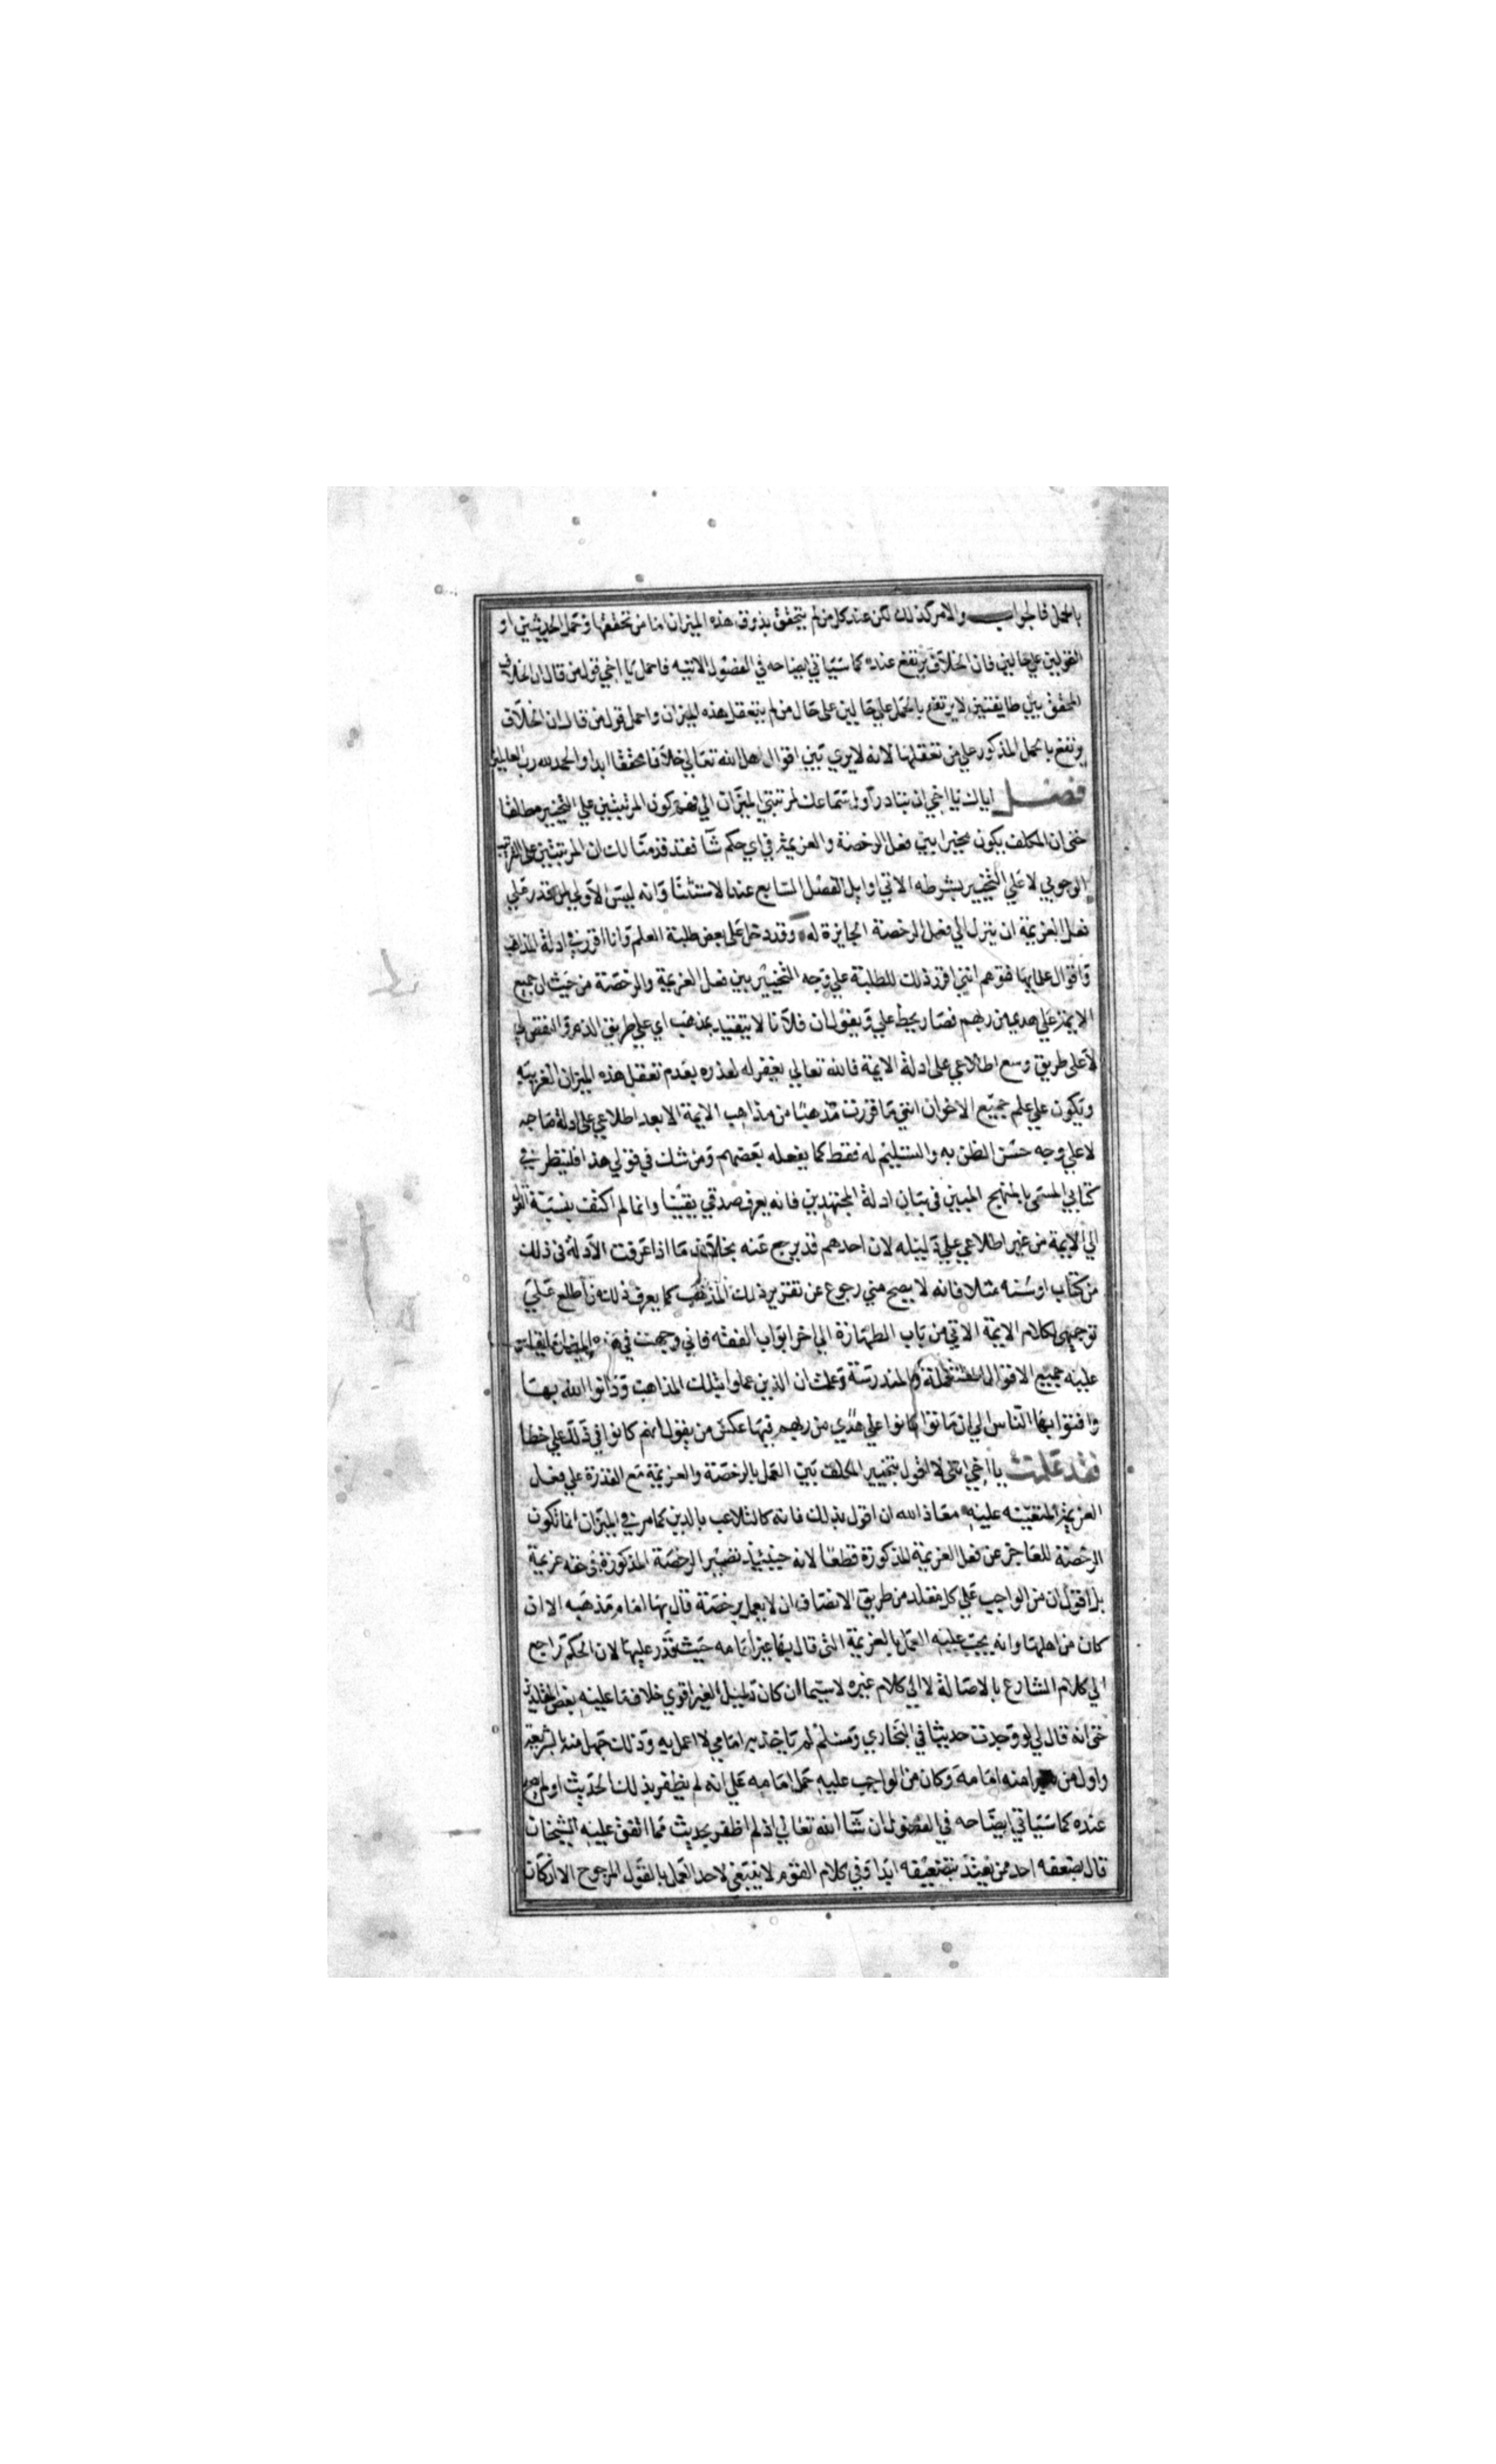 بالحمل فالجواب والامر كذلك لكن عند كل من لم يتحقق بذوق هذه الميزان اما من تحقق بها وحمل الحديثين او
القولين علي حالين فان الخلاف يرتفع عنده كما سياتي ايضاحه في الفصول الاتيه فاحمل يا اخي قول من قال ان الخلاف
المحقق بين طايفتين لا يرتفع بالحمل علي حالين على حال من لم يتعقل هذه الميزان واحمل قول من قال ان الخلاف
يرتفع بالحمل المذكور علي من تعقلها لانه لا يري بين اقوال اهل الله تعالي خلافا محققا ابدا والحمد لله رب العالمين
فصل اياك يا اخي ان تبادر اول سماعك لمرتبتي الميزان الي فهم كون المرتبتين علي التخيير مطلقا
حتى ان المكلف يكون مخيرا بين فعل الرخصة والعزيمة في اي حكم شا فقد قدمنا لك ان المرتبتين على الترتيب
الوجوبي لا علي التخيير بشرطه الاتي اوايل الفصل السابع عند الاستثنا وانه ليس الاولي لمن قدر علي
فعل العزيمة ان ينزل الي فعل الرخصة الجايزة له وقد دخل على بعض طلبة العلم وانا اقرر في ادلة المذاهب
واقوال علمايها فتوهم انني اقرر ذلك للطلبة علي وجه التخيير بين فعل العزيمة والرخصة من حيث ان جميع
الايمة علي هدي من ربهم فصار يحط علي ويقول ان فلانا لا يتقيد بمذهب اي علي طريق الذم والنقص لي
لا على طريق وسع اطلاعي على ادلة الايمة فالله تعالي يغفر له لعذره بعدم تعقل هذه الميزان الغريبة
ويكون علي علم جميع الاخوان انني ما قررت مذهبا من مذاهب الايمة الا بعد اطلاعي على ادلة صاحبه
لا علي وجه حسن الظن به والتسليم له فقط كما يفعله بعضهم ومن شك في قولي هذا فلينظر في
كتابي المسمى بالمنهج المبين في بيان ادلة المجتهدين فانه يعرف صدقي يقينا وانما لم اكتف بنسبة القول
الي الايمة من غير اطلاعي علي دليله لان احدهم قد يرجع عنه بخلاف ما اذا عرفت الادلة في ذلك
من كتاب او سنه مثلا فانه لا يصح مني رجوع عن تقرير ذلك المذهب كما يعرف ذلك من اطلع علي
توجيهي لكلام الايمة الاتي من باب الطهارة الي اخر ابواب الفقه فاني وجهت في هذه الميزان
عليه جميع الاقوال المستعملة والمندرسة وعلمت ان الذين عملوا بتلك المذاهب ودانوا الله بها
وافتوا بها الناس الي ان ماتوا كانوا علي هدي من ربهم فيها عكس من يقول انهم كانوا في ذلك علي خطا
فقد علمت يا اخي انني لا اقول بتخيير المكلف بين العمل بالرخصة والعزيمة مع القدرة علي فعل
العزيمة المتعينه عليه معاذ الله ان اقول بذلك فانه كالتلاعب بالدين كما مر في الميزان انما تكون
الرخصة للعاجز عن فعل العزيمة المذكورة قطعا لانه حينيذ تصير الرخصة المذكورة في حقه عزيمة
بل اقول ان من الواجب علي كل مقلد من طريق الانصاف ان لا يعمل برخصة قال بها امام مذهبه الا ان
كان من اهلها وانه يجب عليه العمل بالعزيمة التي قال بها غير امامه حيث قدر عليها لان الحكم راجع
الي كلام الشارع بالاصالة لا الي كلام غيره لا سيما ان كان دليل الغير اقوي خلاف ما عليه بعض المقلدين
حتى انه قال لي لو وجدت حديثا في البخاري ومسلم لم ياخذ به امامي لا اعمل به وذلك جهل منه بالشريعة
واول من منه امامه وكان من الواجب عليه حمل امامه علي انه لم يظفر بذلك الحديث او لم يصح
عنده كما سياتي ايضاحه في الفصول ان شا الله تعالي اذ لم اظفر بحديث مما اتفق عليه الشيخان
قال بضعفه احد ممن يعتد بتضعيفه ابدا وفي كلام القوم لا ينبغي لاحد العمل بالقول المرجوح الا ان كان